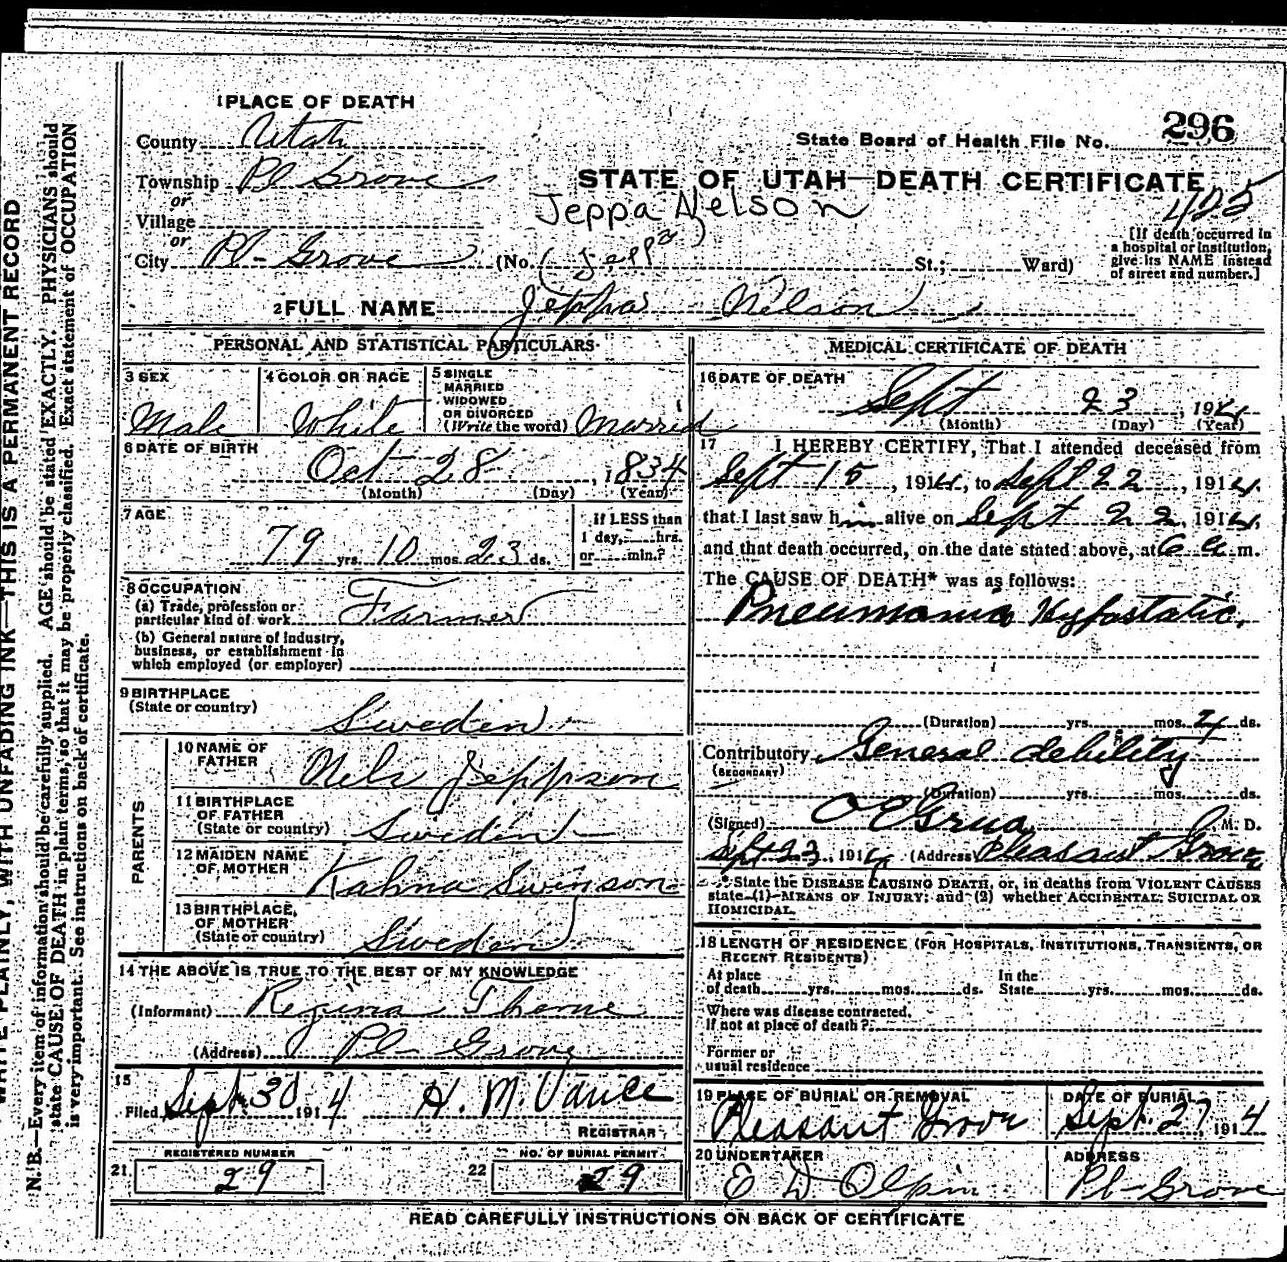 1 PLACE OF DEATH
County Utah
Township Pl Grove
or
Village
or
City Pl- Grove (No. (Jeppa) St.; Ward)
State Board of Health File No. 296
STATE OF UTAH—DEATH CERTIFICATE
425
Jeppa Nelson
[If death occurred in
a hospital or institution,
give its NAME instead
of street and number.]
2 FULL NAME Jeppa Nelson
PERSONAL AND STATISTICAL PARTICULARS
3 SEX
Male
4 COLOR OR RACE
White
5 SINGLE
MARRIED
WIDOWED
OR DIVORCED
(Write the word) Married
6 DATE OF BIRTH
Oct 28, 1834
(Month) (Day) (Year)
7 AGE
79 yrs. 10 mos. 23 ds.
If LESS than
1 day, hrs.
or min.?
8 OCCUPATION
(a) Trade, profession or
particular kind of work Farmer
(b) General nature of industry,
business, or establishment in
which employed (or employer)
9 BIRTHPLACE
(State or country)
Sweden
PARENTS
10 NAME OF
FATHER Nels Jeppson
11 BIRTHPLACE
OF FATHER
(State or country) Sweden
12 MAIDEN NAME
OF MOTHER Kahna Swinson
13 BIRTHPLACE
OF MOTHER
(State or country) Sweden
14 THE ABOVE IS TRUE TO THE BEST OF MY KNOWLEDGE
(Informant) Regina Thorne
(Address) Pl- Grove
15
Filed Sept. 30 1914 H. M. Vance
REGISTRAR
21 REGISTERED NUMBER
29
22 NO. OF BURIAL PERMIT
29
MEDICAL CERTIFICATE OF DEATH
16 DATE OF DEATH
Sept 23, 1914
(Month) (Day) (Year)
17 I HEREBY CERTIFY, That I attended deceased from
Sept 15, 1914, to Sept 22, 1914.
that I last saw him alive on Sept 22, 1914.
and that death occurred, on the date stated above, at 6 a m.
The CAUSE OF DEATH* was as follows:
Pneumonia Hypostatic.
(Duration) yrs. mos. 4 ds.
Contributory General debility
(SECONDARY)
(Duration) yrs. mos. ds.
(Signed) O E Grua, M. D.
Sept 23, 1914 (Address) Pleasant Grove
*State the DISEASE CAUSING DEATH, or, in deaths from VIOLENT CAUSES
state (1) MEANS OF INJURY; and (2) whether ACCIDENTAL, SUICIDAL OR
HOMICIDAL.
18 LENGTH OF RESIDENCE (FOR HOSPITALS, INSTITUTIONS, TRANSIENTS, OR
RECENT RESIDENTS)
At place
of death yrs. mos. ds.
In the
State yrs. mos. ds.
Where was disease contracted,
If not at place of death?
Former or
usual residence
19 PLACE OF BURIAL OR REMOVAL
Pleasant Grove
DATE OF BURIAL
Sept. 27 1914
20 UNDERTAKER
E D Olpin
ADDRESS
Pl- Grove
READ CAREFULLY INSTRUCTIONS ON BACK OF CERTIFICATE
WRITE PLAINLY, WITH UNFADING INK—THIS IS A PERMANENT RECORD
N. B.—Every item of information should be carefully supplied. AGE should be stated EXACTLY. PHYSICIANS should
state CAUSE OF DEATH in plain terms, so that it may be properly classified. Exact statement of OCCUPATION
is very important. See instructions on back of certificate.